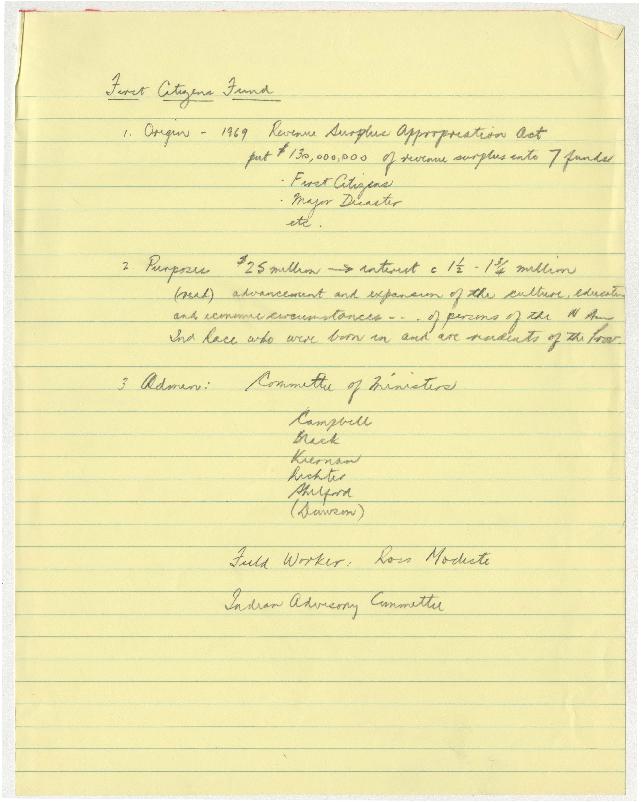 First Citizens Fund
1. Origin - 1969 Revenue Surplus Appropriation Act
put $130,000,000 of revenue surplus into 7 funds
· First Citizens
· Major Disaster
etc.
2 Purposes $25 million → interest c 1½ - 1¾ million
(read) advancement and expansion of the culture, education
and economic circumstances - - . of persons of the N Am
Ind Race who were born in and are residents of the Prov.
3 Admin: Committee of Ministers
Campbell
Black
Kiernan
Richter
Shelford
(Dawson)
Field Worker: Ross Modeste
Indian Advisory Committee